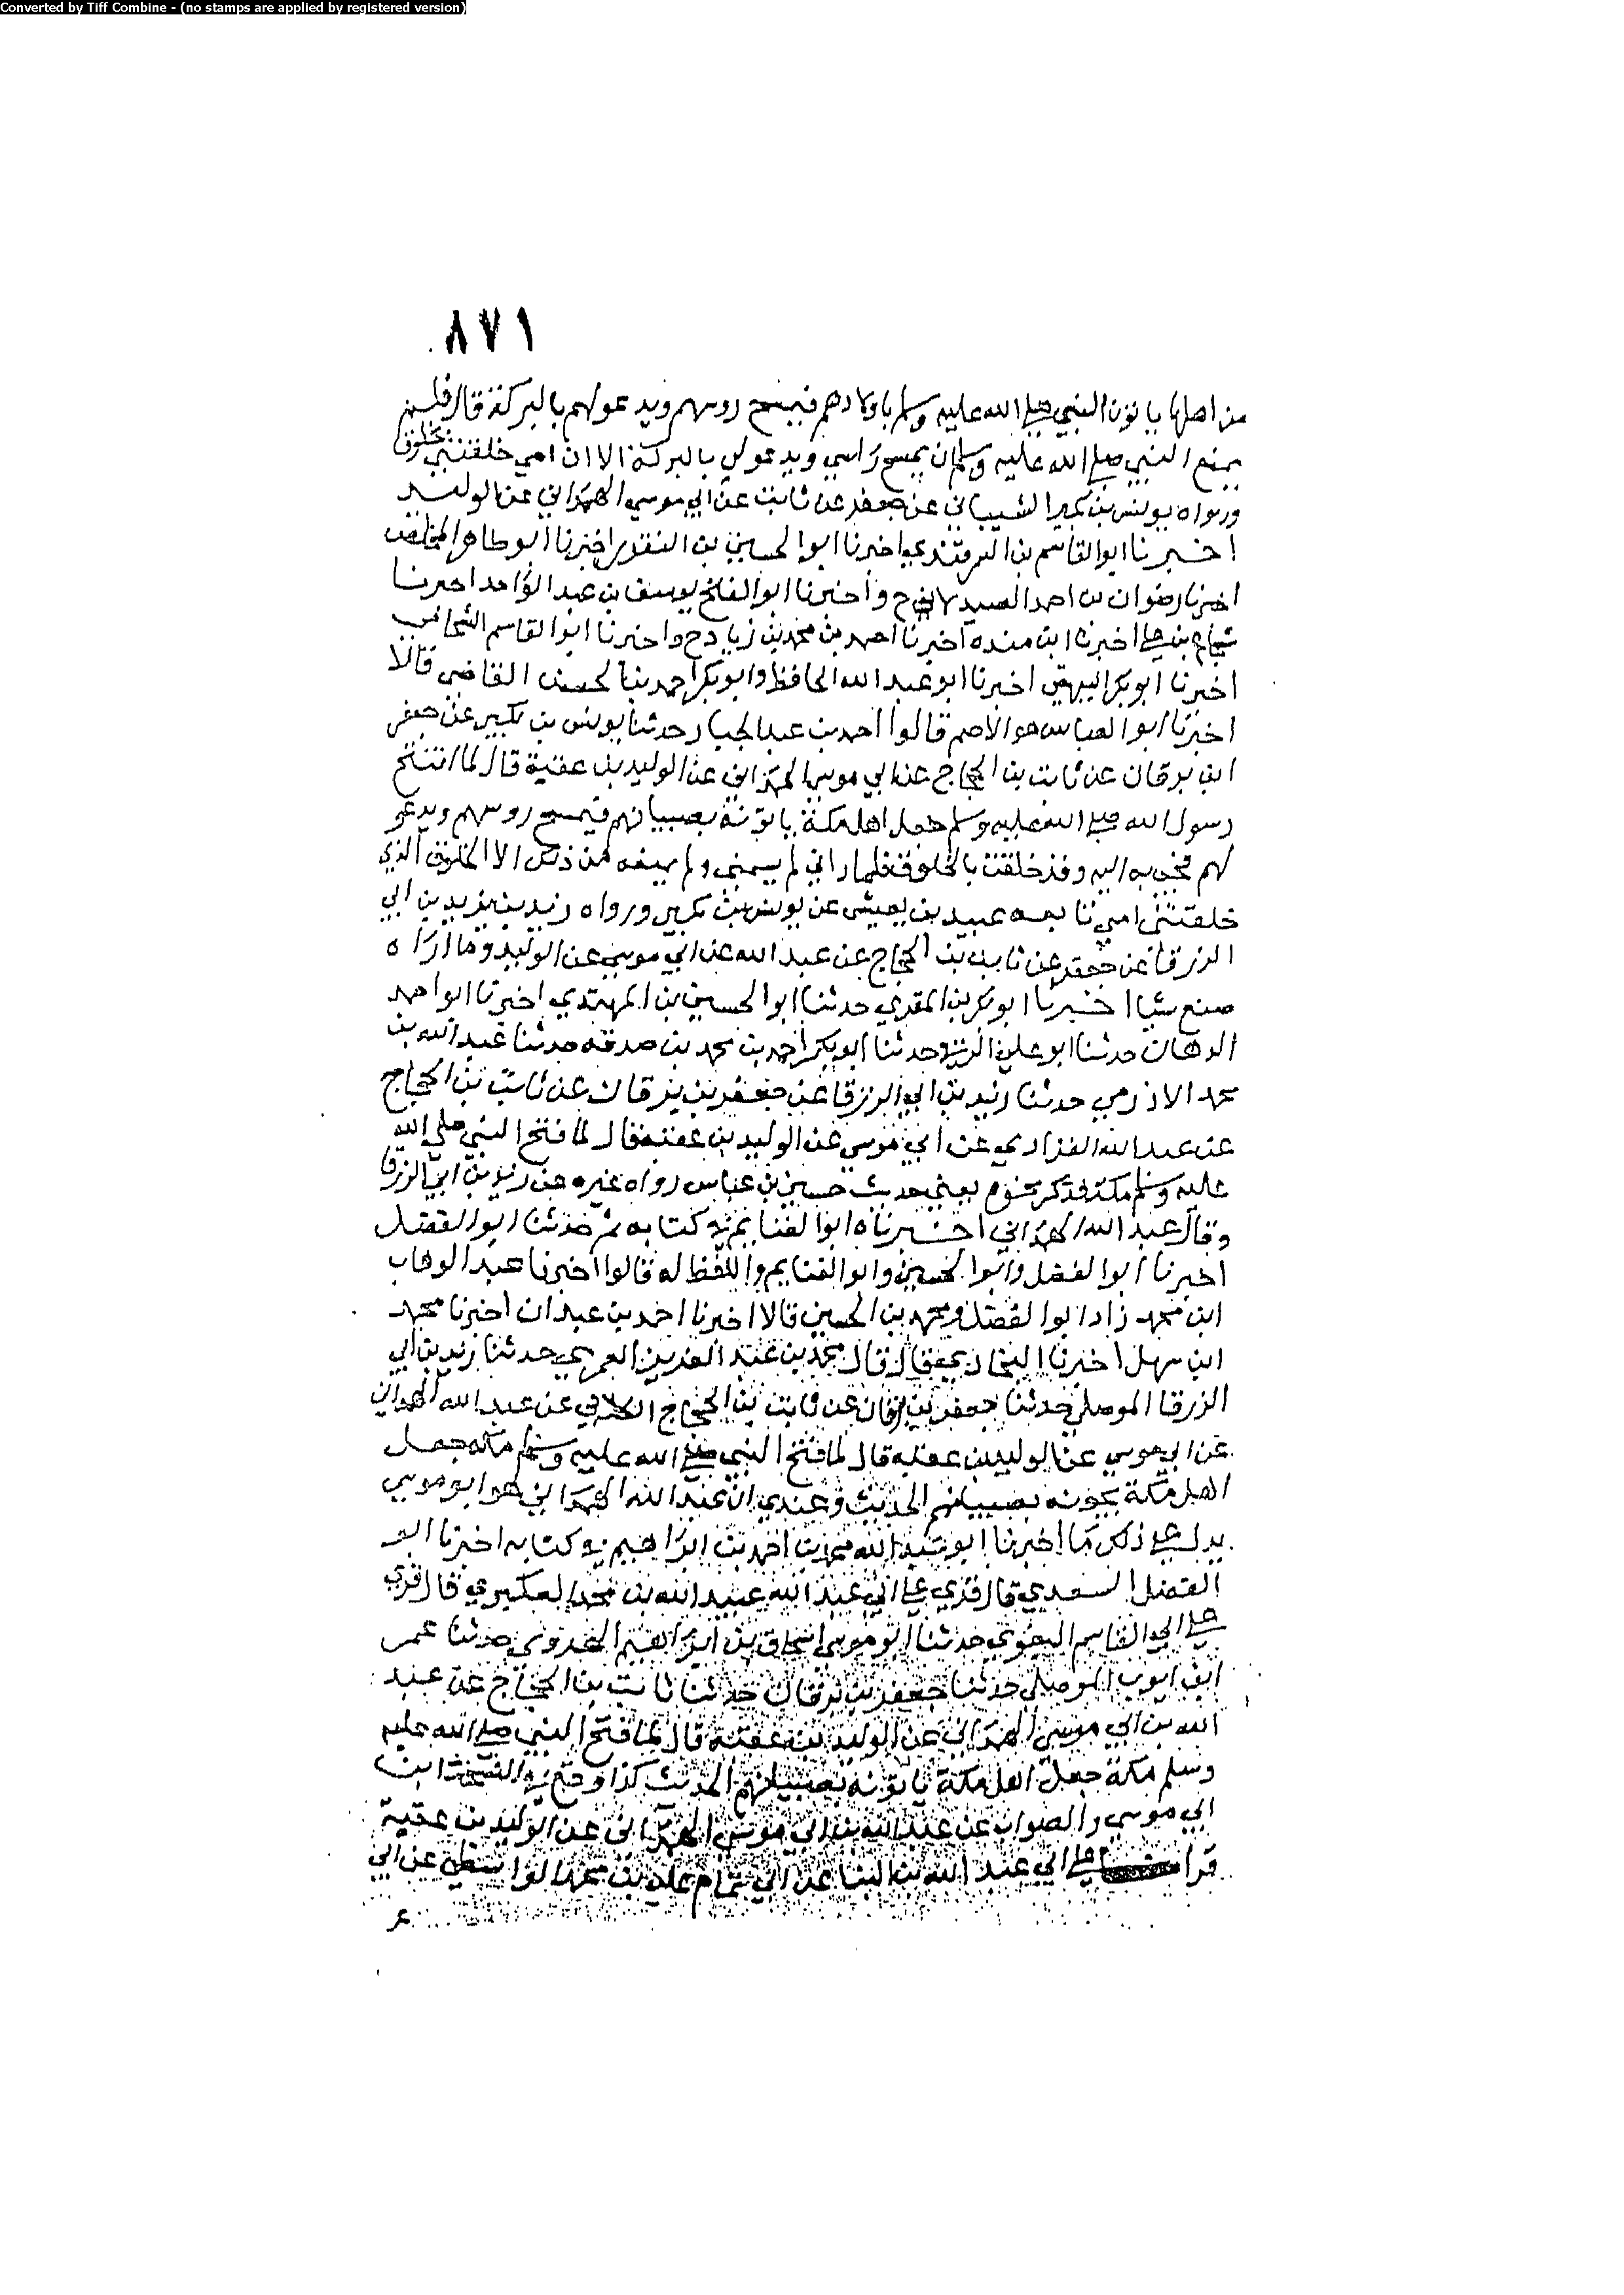 Converted by Tiff Combine - (no stamps are applied by registered version)
٨٧١
من اهلها ياتون النبي صلى الله عليه وسلم باولادهم فيمسح روسهم ويدعولهم بالبركة قال فلم
يمنع النبي صلى الله عليه وسلم ان يمسح راسي ويدعولي بالبركة الا ان امي خلقتني بخلوق
ورواه يونس بن بكير الشيباني عن جعفر عن ثابت عن ابي موسى الهمداني عن الوليد
اخبرنا ابوا القاسم بن السمرقندي اخبرنا ابوا لحسين بن النقور اخبرنا ابو طاهر المخلص
اخبرنا رضوان بن احمد الصيدلاني ح واخبرنا ابوا الفتح يوسف بن عبد الواحد اخبرنا
شجاع بن علي اخبرنا ابن منده اخبرنا احمد بن محمد بن زياد ح واخبرنا ابوا القاسم الشحامي
اخبرنا ابو بكر البيهقي اخبرنا ابو عبد الله الحافظ وابو بكر احمد بن الحسن القاضي قالا
اخبرنا ابوا العباس هو الاصم قالوا احمد بن عبد الجبار حدثنا يونس بن بكير عن جعفر
ابن برقان عن ثابت بن الحجاج عن ابي موسى الهمداني عن الوليد بن عقبة قال لما افتتح
رسول الله صلى الله عليه وسلم جعل اهل مكة ياتونه بصبيانهم فيمسح روسهم ويدعو
لهم فجي به اليه وقد خلقت بالخلوق فلما راني لم يمسني ولم يمنعه من ذلك الا الخلوق الذي
خلقتني امي تابعه عبيد بن يعيش عن يونس بن بكير ورواه زيد بن يزيد بن ابي
الزرقا عن جعفر عن ثابت بن الحجاج عن عبد الله عن ابي موسى عن الوليد وما اراه
صنع شيا اخبرنا ابو بكر بن المقدي حدثنا ابوا الحسين بن المهتدي اخبرنا ابوا احمد
الدهان حدثنا ابو علي حدثنا ابو بكر احمد بن محمد بن صدقه حدثنا عبد الله بن
محمد الاذرمي حدثنا زيد بن ابي الزرقا عن جعفر بن برقان عن ثابت بن الحجاج
عن عبد الله الفزاري عن ابي موسى عن الوليد بن عقبة قال لما فتح النبي صلى الله
عليه وسلم مكة فذكر نحوه يعني حديث حسين بن عباس رواه غيره عن زيد بن ابي الزرقا
وقال عبد الله الهمداني اخبرناه ابوا الغنايم في كتابه ثم حدثنا ابوا الفضل
اخبرنا ابوا لفضل وابوا لحسين وابوا الغنايم واللفظ له قالوا اخبرنا عبد الوهاب
ابن محمد زاد ابوا لفضل ومحمد بن الحسين قالا اخبرنا احمد بن عبدان اخبرنا محمد
ابن سهل اخبرنا البخاري قال قال محمد بن عبد العزيز العمري حدثنا زيد بن ابي
الزرقا الموصلي حدثنا جعفر بن برقان عن ثابت بن الحجاج الكلابي عن عبد الله الهمداني
عن ابي موسى عن الوليد بن عقبه قال لما فتح النبي صلى الله عليه وسلم مكه جعل
اهل مكة يجونه بصبيانهم الحديث وعندي ان عبد الله الهمداني هو ابو موسى
يدل على ذلك ما اخبرنا ابو عبد الله محمد بن احمد بن ابراهيم في كتابه اخبرنا ابو
الفضل السعدي قال قري على ابي عبد الله عبيد الله بن محمد العكبري قال قري
على ابي القاسم البغوي حدثنا ابو موسى اسحاق بن ابراهيم الهروي حدثنا عمر
ابن ايوب الموصلي حدثنا جعفر بن برقان حدثنا ثابت بن الحجاج عن عبد
الله بن ابي موسى الهمداني عن الوليد بن عقبة قال لما فتح النبي صلى الله عليه
وسلم مكة جعل اهل مكة ياتونه بصبيانهم الحديث كذا وقع في النسخة ابن
ابي موسى والصواب عن عبد الله بن ابي موسى الهمداني عن الوليد بن عقبة
قرا على ابي عبد الله بن البنا عن ابي تمام علي بن محمد الواسطي عن ابي
عر